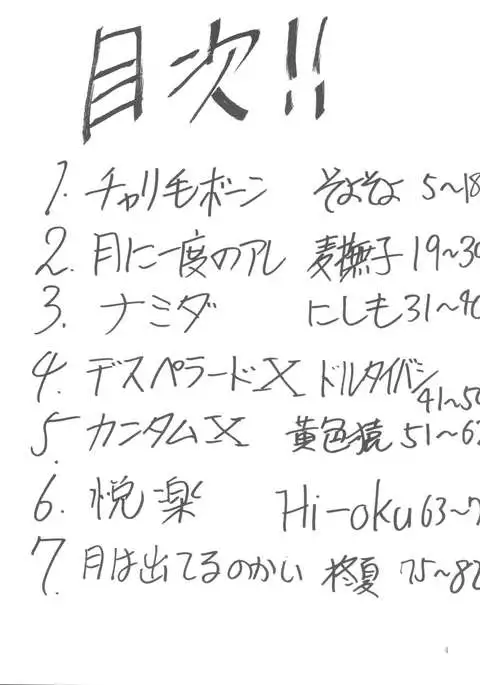 目次!!
1. チャリ毛ボーン そよそよ 5~18
2. 月に一度のアレ 麦撫子 19~30
3. ナミダ にしも 31~40
4. デスペラードX ドルタイバシ 41~50
5. カンタムX 黄色猿 51~62
6. 悦楽 Hi-oku 63~7
7. 月は出てるのかい 柊夏 75~82
4